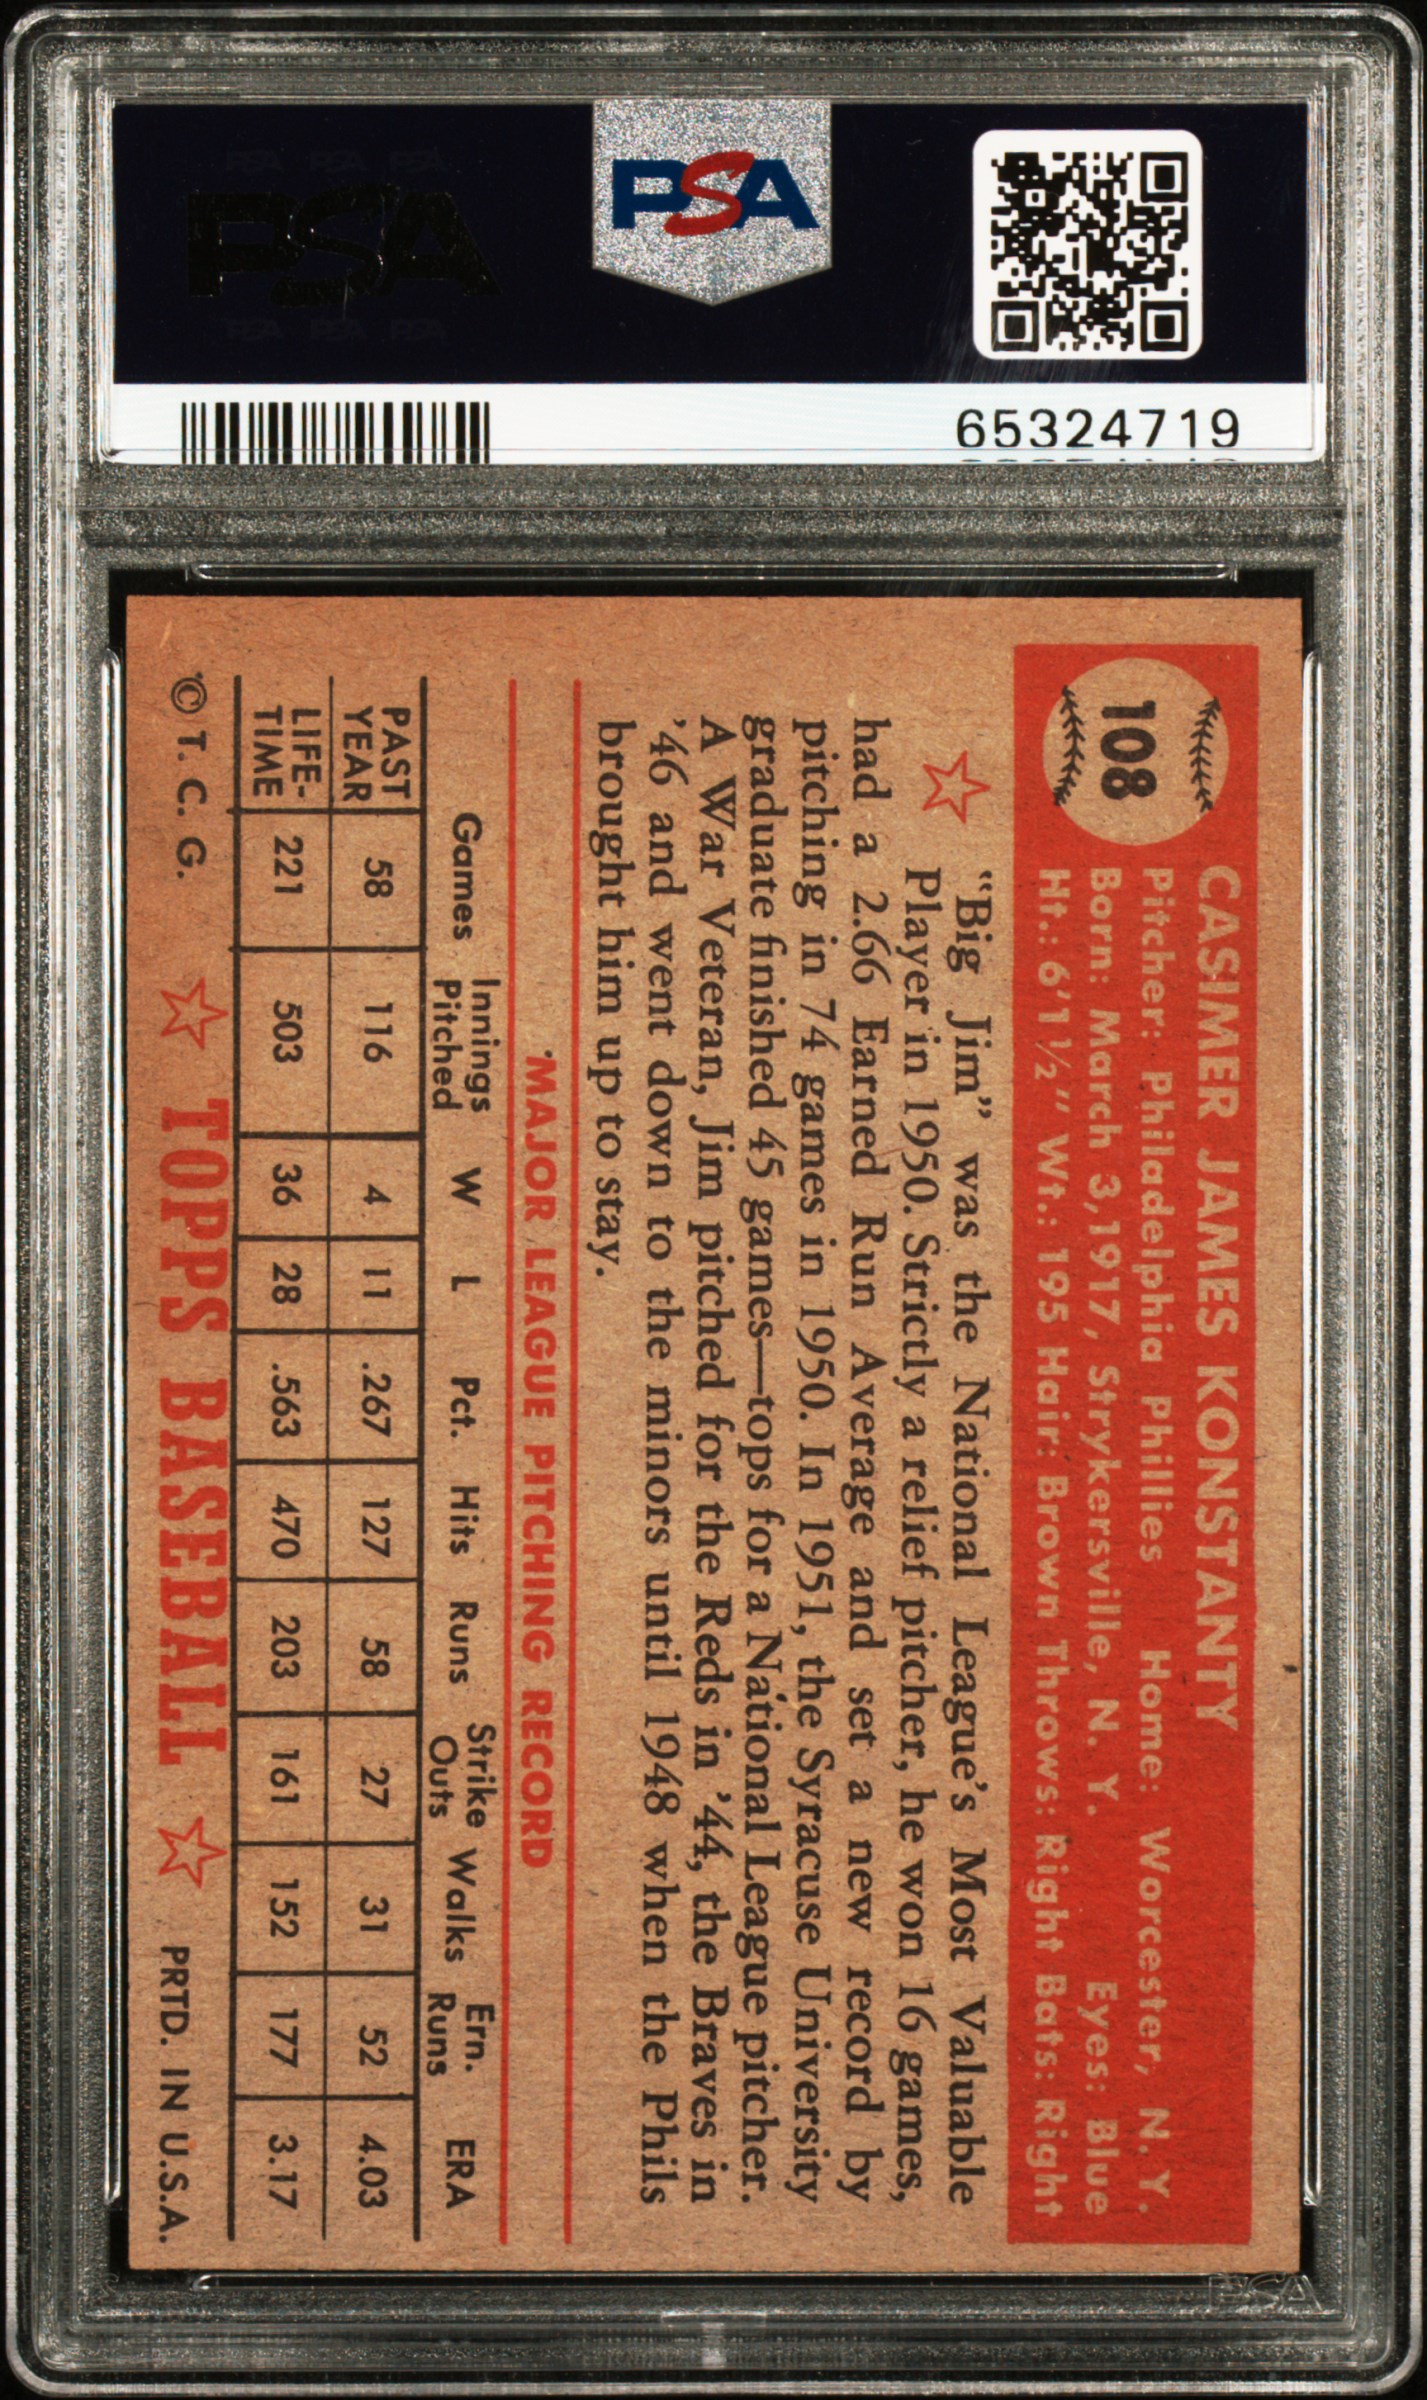 PSA
PSA
65324719
108
CASIMER JAMES KONSTANTY
Pitcher: Philadelphia Phillies Home: Worcester, N. Y.
Born: March 3, 1917, Strykersville, N. Y. Eyes: Blue
Ht.: 6'1½" Wt.: 195 Hair: Brown Throws: Right Bats: Right
"Big Jim" was the National League's Most Valuable
Player in 1950. Strictly a relief pitcher, he won 16 games,
had a 2.66 Earned Run Average and set a new record by
pitching in 74 games in 1950. In 1951, the Syracuse University
graduate finished 45 games—tops for a National League pitcher.
A War Veteran, Jim pitched for the Reds in '44, the Braves in
'46 and went down to the minors until 1948 when the Phils
brought him up to stay.
MAJOR LEAGUE PITCHING RECORD
Games Innings Pitched W L Pct. Hits Runs Strike Outs Walks Ern. Runs ERA
PAST YEAR 58 116 4 11 .267 127 58 27 31 52 4.03
LIFE-TIME 221 503 36 28 .563 470 203 161 152 177 3.17
© T. C. G. TOPPS BASEBALL PRTD. IN U.S.A.
PSA